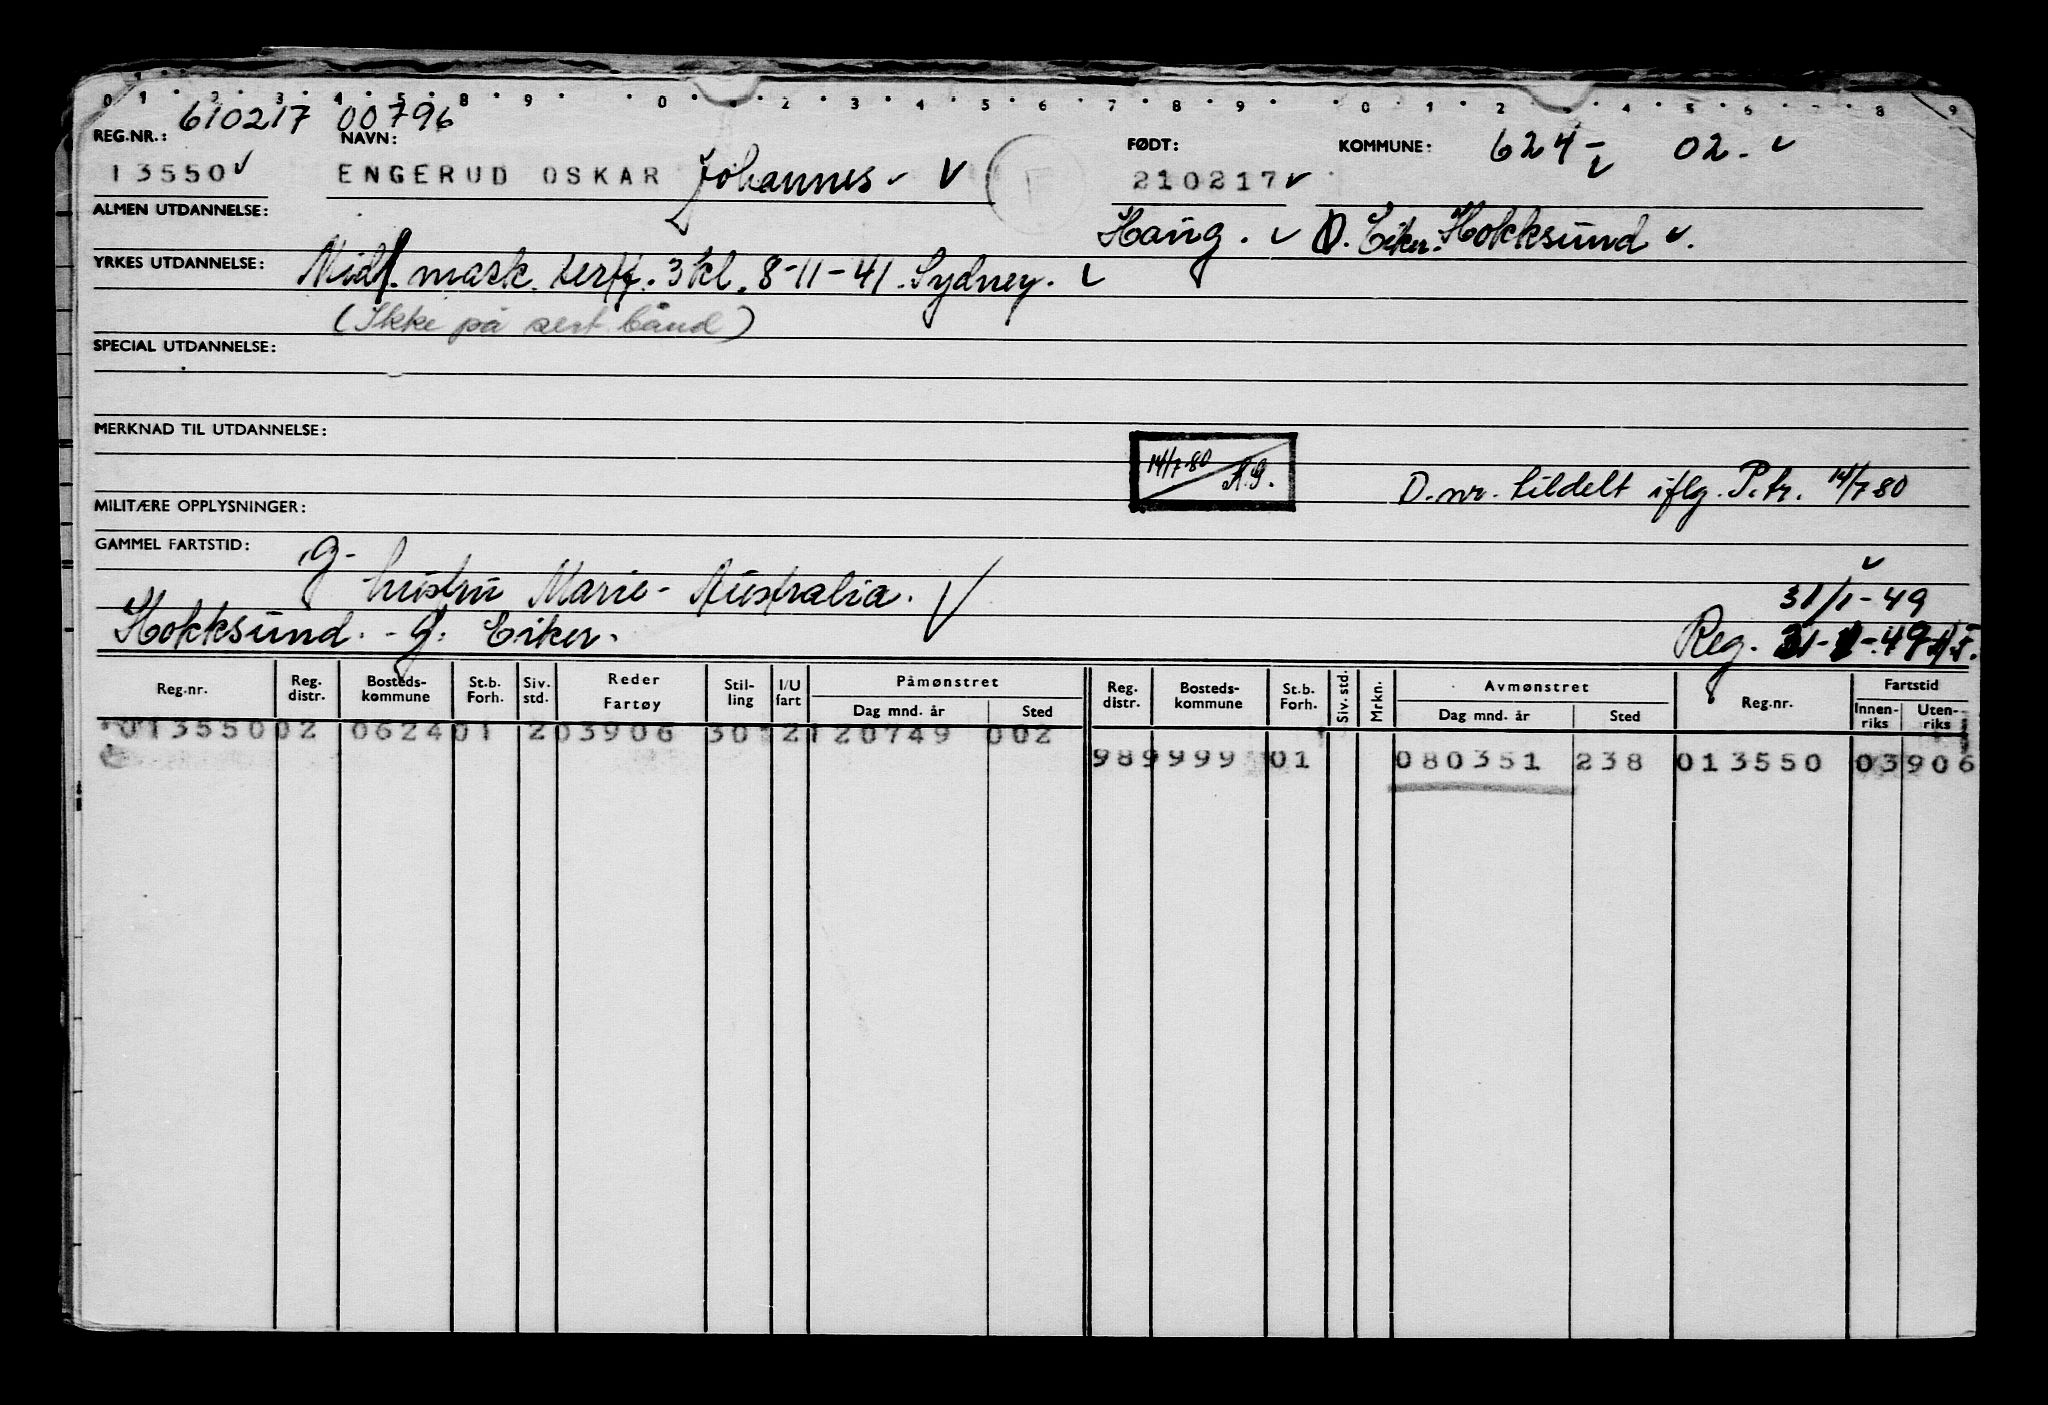 0 1 2 3 4 5 8 9 0 2 3 4 5 6 7 8 9 0 1 2 4 5 6 8 9
610217 00796
REG.NR.: NAVN: FØDT: KOMMUNE: 624- 02.
13550 ENGERUD OSKAR Johannes 210217
ALMEN UTDANNELSE: Haug. Ø. Eiker. Hokksund
YRKES UTDANNELSE: Midl. mask. sertf. 3 kl. 8-11-41. Sydney.
(Ikke på sert. bånd)
SPECIAL UTDANNELSE:
MERKNAD TIL UTDANNELSE:
14/7-80 A.G.
D.nr. tildelt iflg. P.tr. 14/7 80
MILITÆRE OPPLYSNINGER:
GAMMEL FARTSTID: g-
hustru Marie - Australia. 31/1-49
Hokksund. - Ø. Eiker. Reg. 31-1-49
Reg.nr. Reg. distr. Bosteds-kommune St.b. Forh. Siv. std. Reder Fartøy Stil-ling I/U fart Påmønstret Dag mnd. år Sted Reg. distr. Bosteds-kommune St.b. Forh. Siv. std. Mrkn. Avmønstret Dag mnd. år Sted Reg.nr. Fartstid Innen-riks Uten-riks
013550 02 0624 01 2 03906 301 2 120749 002
989 999 01 080351 238 013550 03906